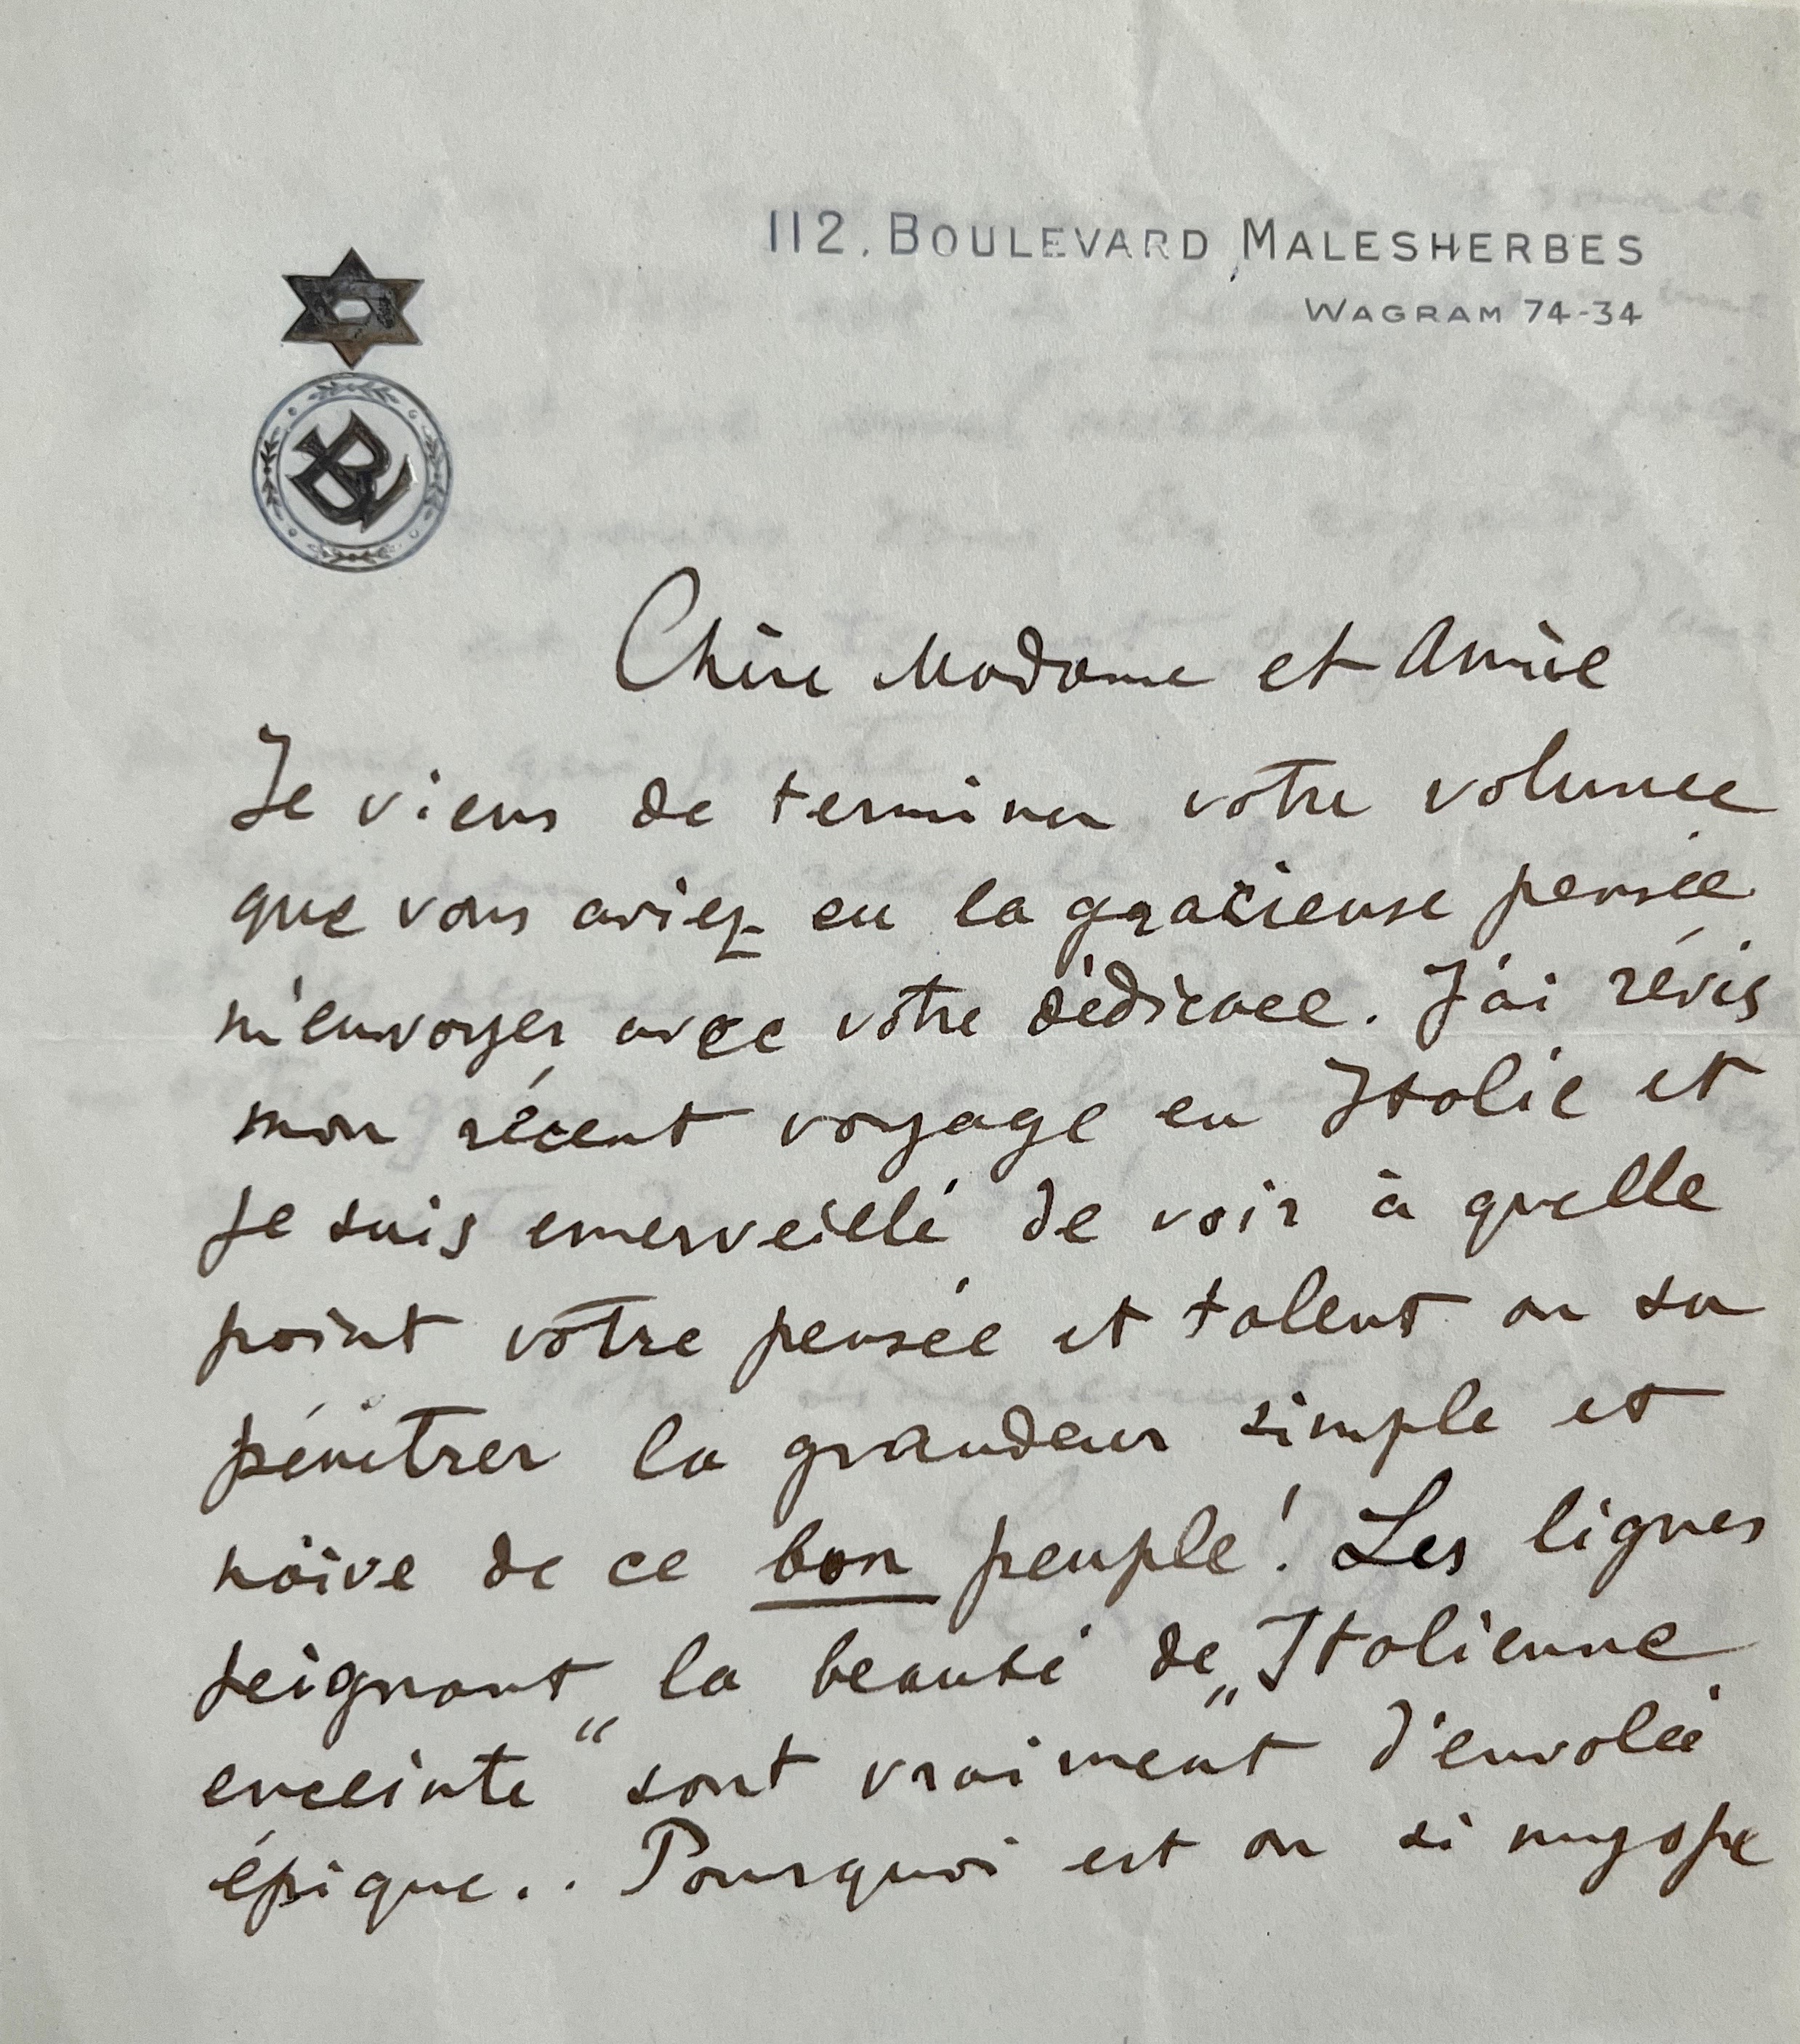 112. BOULEVARD MALESHERBES
WAGRAM 74-34
Chère Madame et Amie
Je viens de terminer votre volume
que vous aviez eu la gracieuse pensée
m'envoyer avec votre dédicace. J'ai révis
mon récent voyage en Italie et
je suis emerveillé de voir à quelle
point votre pensée et talent on su
pénétrer la grandeur simple et
näive de ce bon peuple! Les lignes
peignant la beauté de „Italienne
enceinte“ sont vraiment d'envolée
épique.. Pourquoi est on si myope